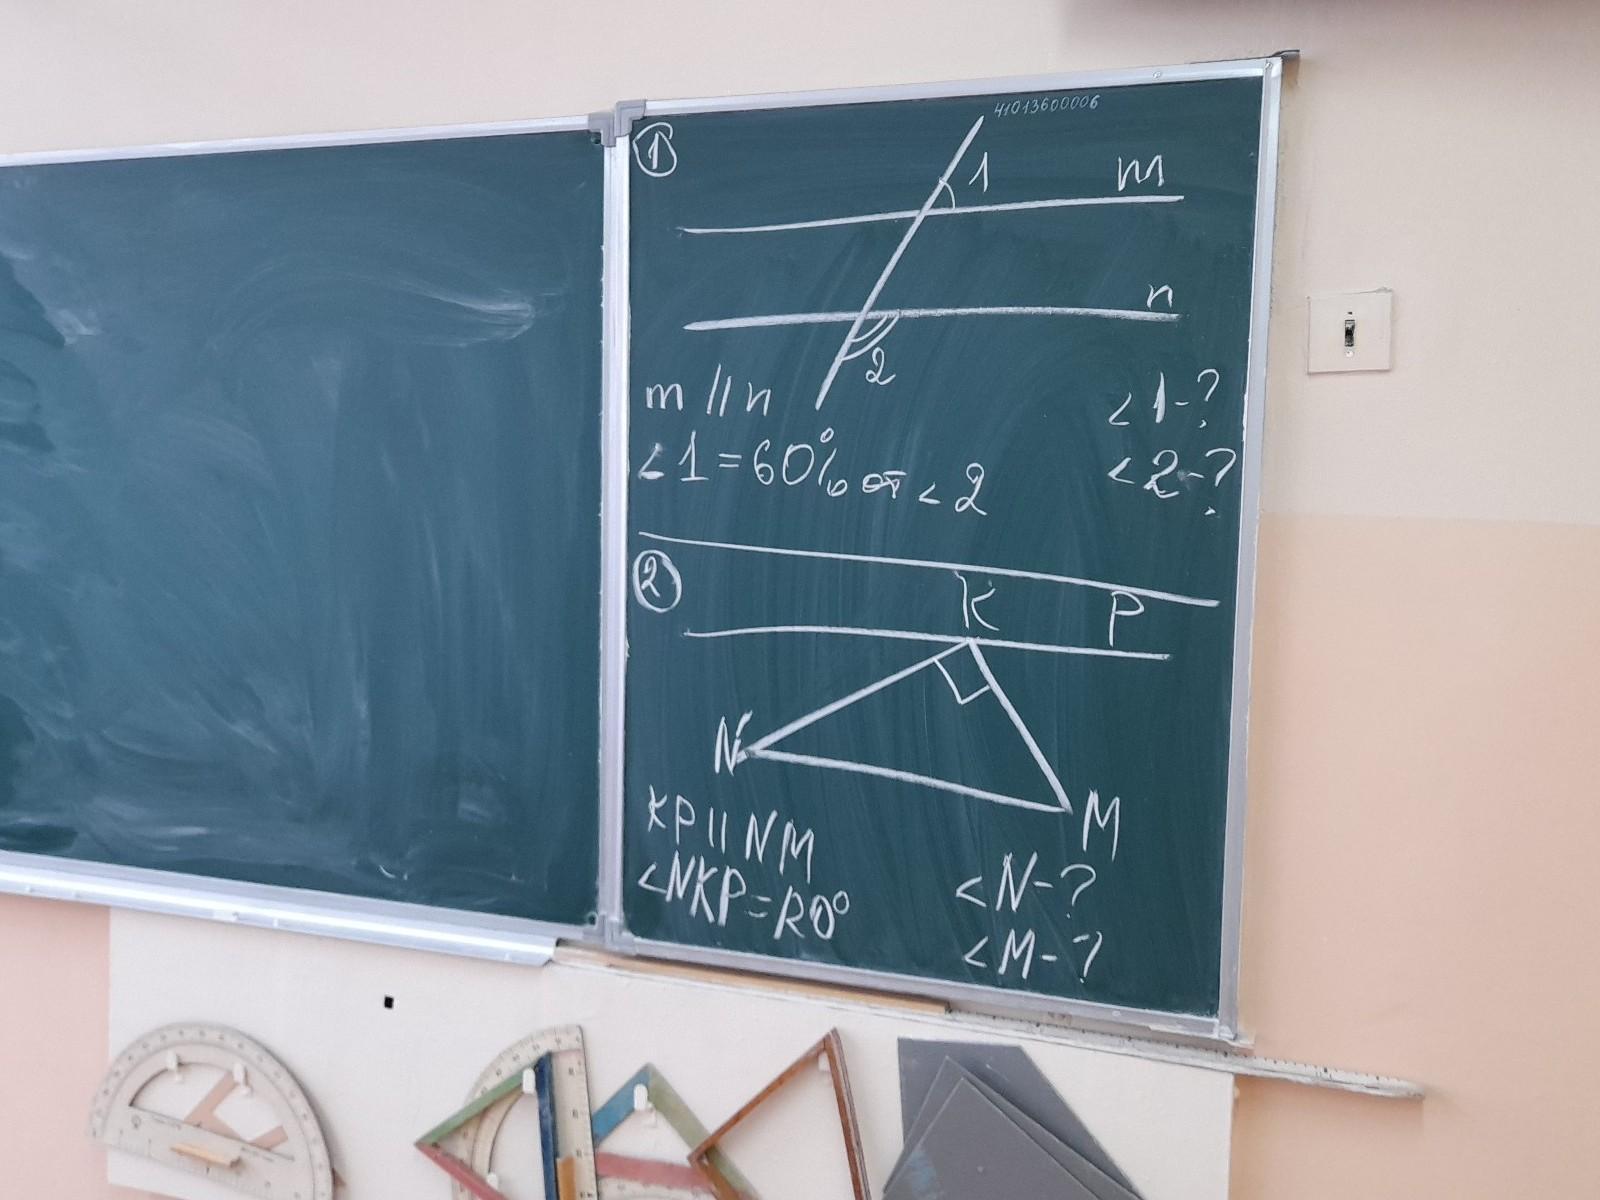 41013600006
①
1
m
n
2
m || n
<1 - ?
<1 = 60% от <2
<2 - ?
②
K P
N
M
KP || NM
<N - ?
<M - ?